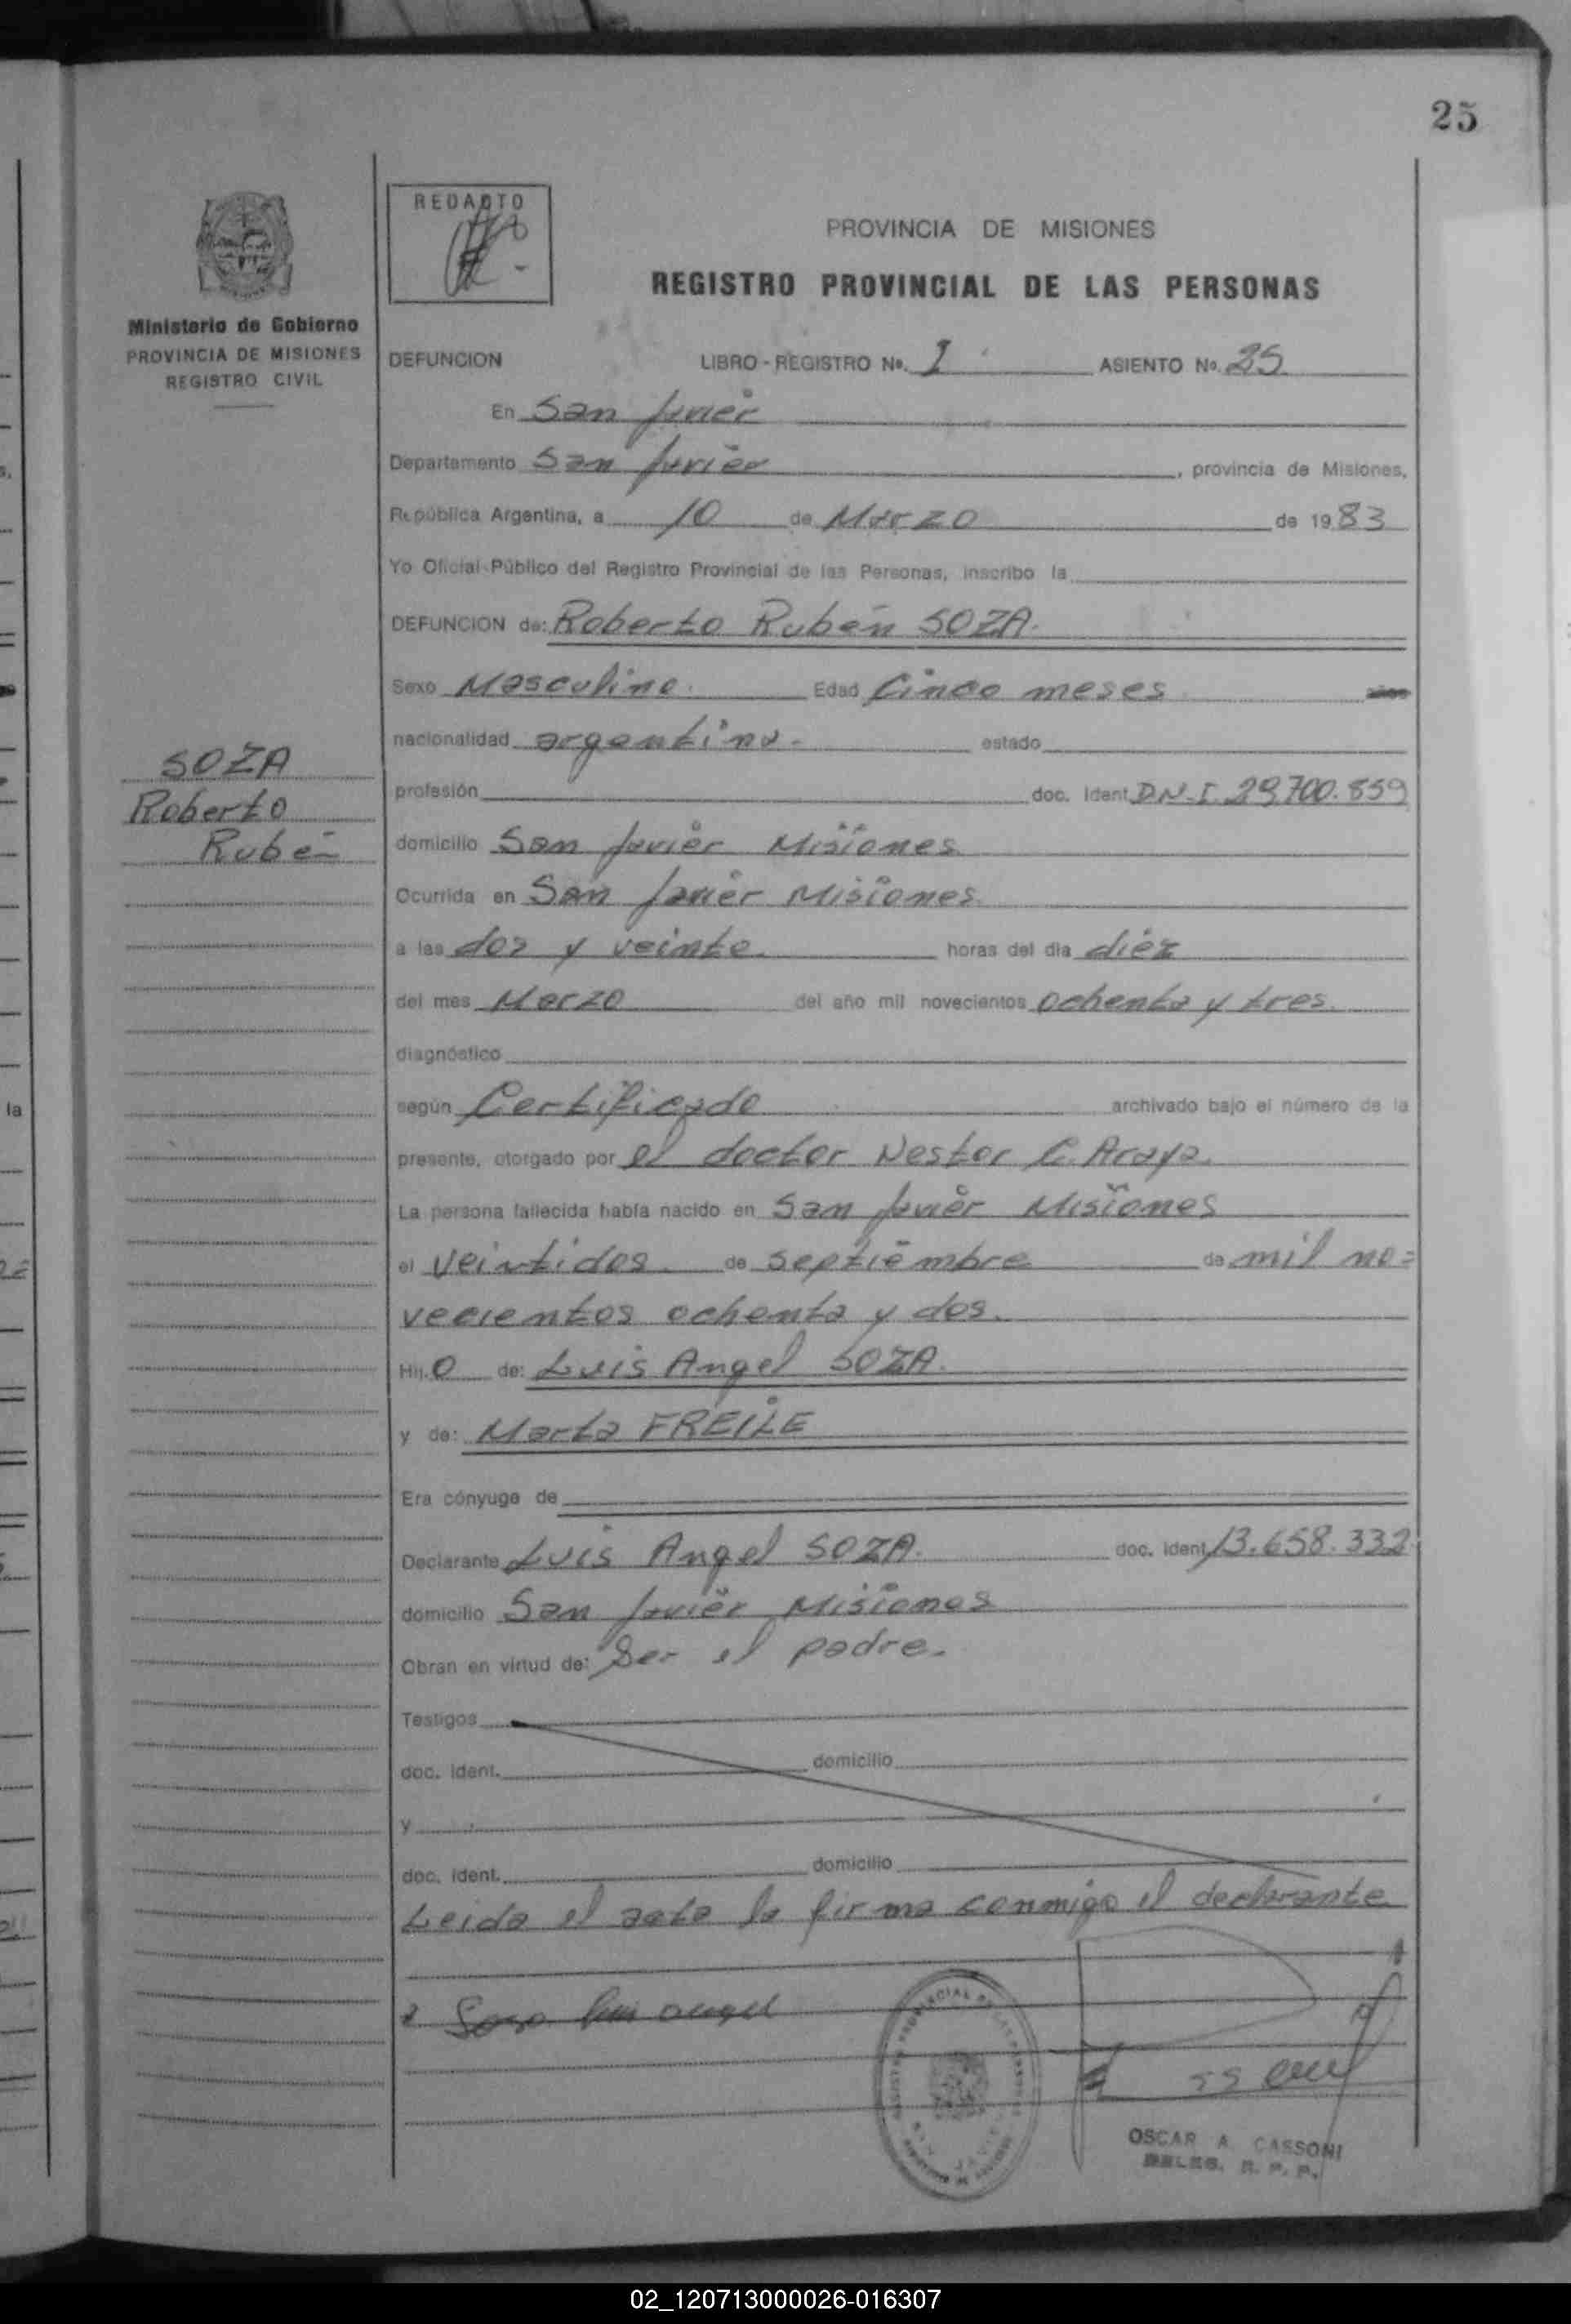 25
REDACTO
PROVINCIA DE MISIONES
REGISTRO PROVINCIAL DE LAS PERSONAS
Ministerio de Gobierno
PROVINCIA DE MISIONES
REGISTRO CIVIL
DEFUNCION LIBRO - REGISTRO No. 1 ASIENTO No. 25
En San Javier
Departamento San Javier, provincia de Misiones,
República Argentina, a 10 de Marzo de 1983
Yo Oficial Público del Registro Provincial de las Personas, inscribo la
DEFUNCION de: Roberto Rubén SOZA.
Sexo Masculino. Edad Cinco meses
nacionalidad argentina. estado
SOZA
Roberto
Rubén
profesión doc. ident. D.N.I. 29.700.859
domicilio San Javier Misiones
Ocurrida en San Javier Misiones.
a las dos y veinte. horas del día diéz
del mes Marzo del año mil novecientos ochenta y tres.
diagnóstico
según Certificado archivado bajo el número de la
presente, otorgado por el doctor Nestor C. Araya.
La persona fallecida había nacido en San Javier Misiones
el veintidos de septiembre de mil no=
vecientos ochenta y dos.
Hij o de: Luis Angel SOZA.
y de: Marta FREILE
Era cónyuge de
Declarante Luis Angel SOZA. doc. ident. 13.658.332
domicilio San Javier Misiones
Obran en virtud de: Ser el padre.
Testigos
doc. ident. domicilio
y
doc. ident. domicilio
Leida el acta la firma conmigo el declarante
Soza Luis angel
OSCAR A. CASSONI
DELEG. R. P. P.
02_120713000026-016307